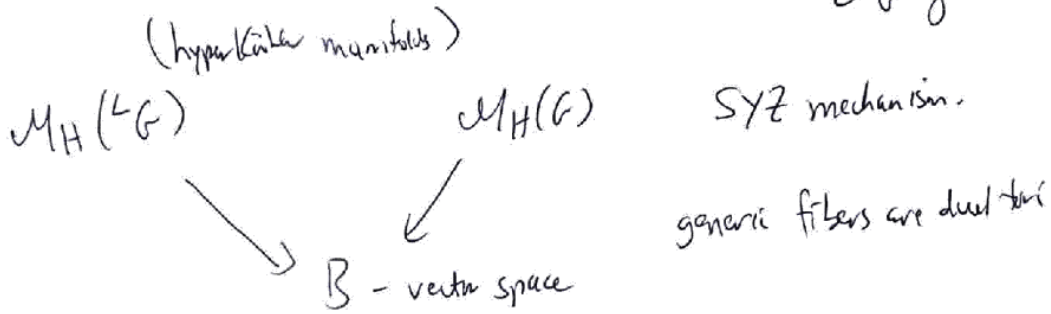 (hyperKähler manifolds)
M_H(^LG) M_H(G) SYZ mechanism.
generic fibers are dual tori
B - vector space